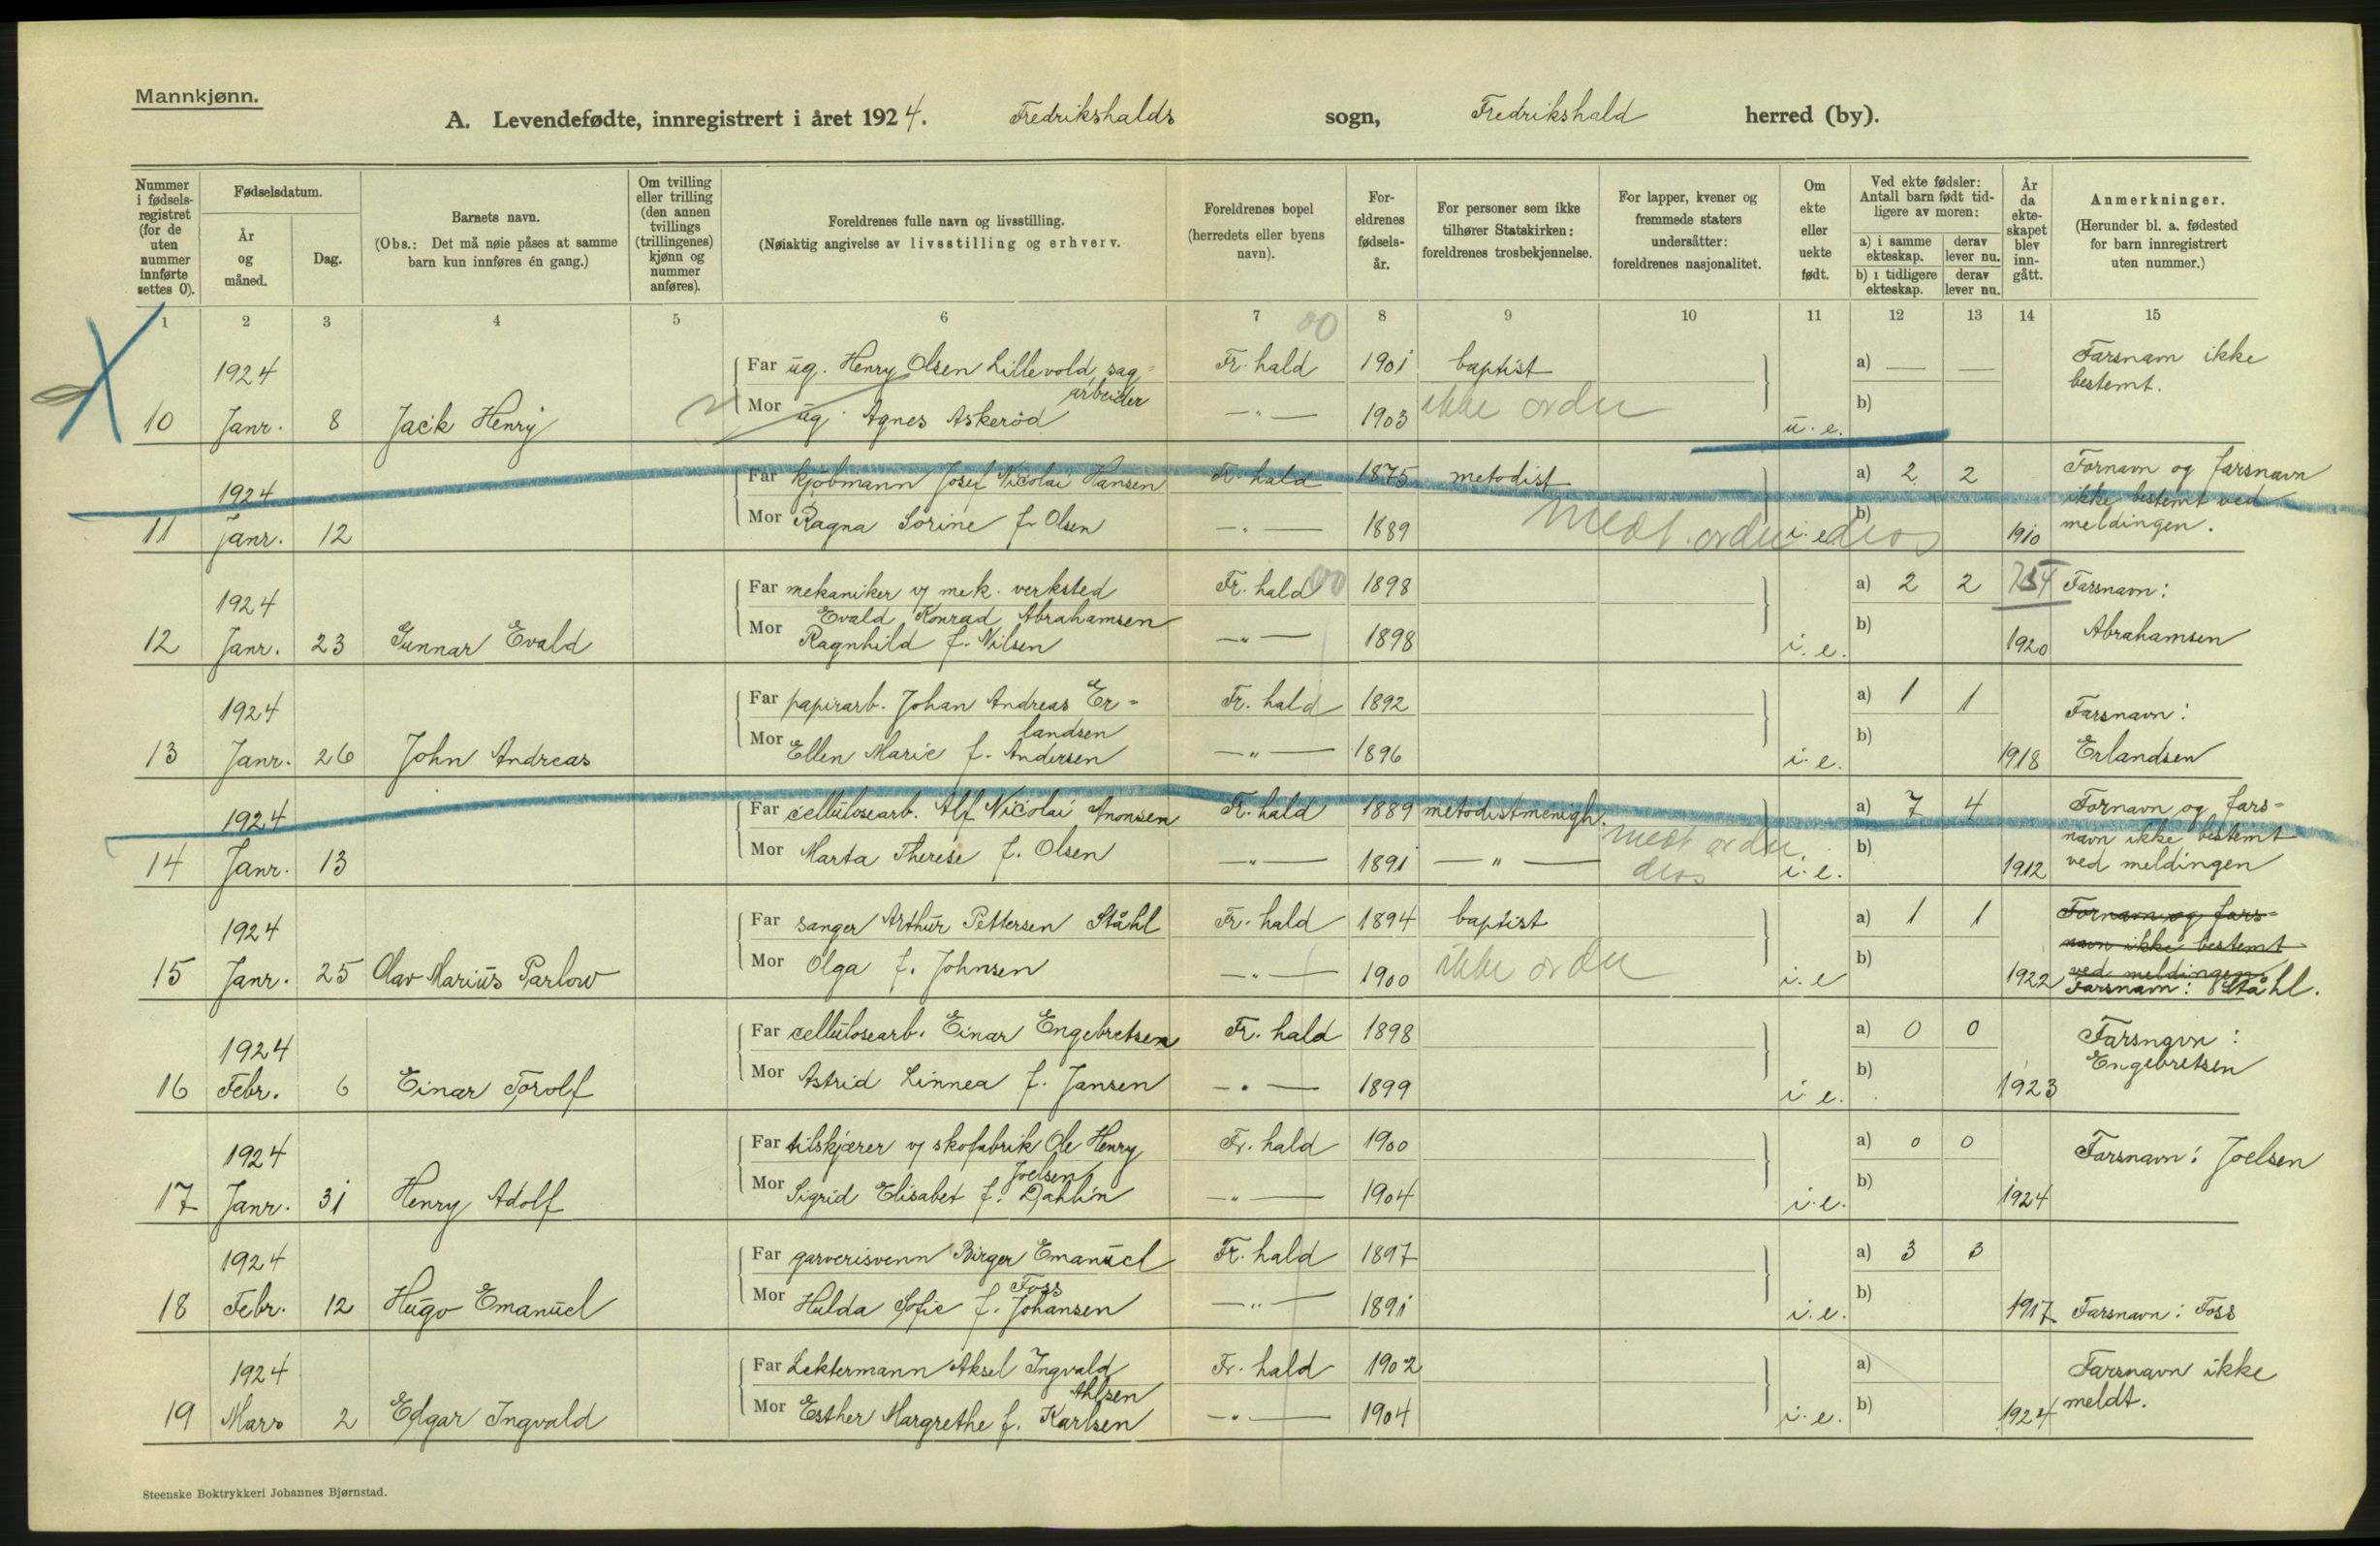 Mannkjønn.
A. Levendefødte, innregistrert i året 1924. Fredrikshalds sogn, Fredrikshald herred (by).
Nummer i fødsels-registret (for de uten nummer innførte settes 0).
Fødselsdatum.
År og måned.
Dag.
Barnets navn.
(Obs.: Det må nøie påses at samme barn kun innføres én gang.)
Om tvilling eller trilling (den annen tvillings (trillingenes) kjønn og nummer anføres).
Foreldrenes fulle navn og livsstilling.
(Nøiaktig angivelse av livsstilling og erhverv.
Foreldrenes bopel (herredets eller byens navn).
For-eldrenes fødsels-år.
For personer som ikke tilhører Statskirken: foreldrenes trosbekjennelse.
For lapper, kvener og fremmede staters undersåtter: foreldrenes nasjonalitet.
Om ekte eller uekte født.
Ved ekte fødsler: Antall barn født tid-ligere av moren:
a) i samme ekteskap.
derav lever nu.
b) i tidligere ekteskap.
derav lever nu.
År da ekte-skapet blev inn-gått.
Anmerkninger.
(Herunder bl. a. fødested for barn innregistrert uten nummer.)
1 2 3 4 5 6 7 8 9 10 11 12 13 14 15
00
1924 Far ug. Henry Olsen Lillevold, sag- Fr. hald 1901 baptist a) — — Farsnavn ikke
arbeider bestemt.
10 Janr. 8 Jack Henry Mor ug. Agnes Askeröd —"— 1903 ikke ordu u. e. b)
1924 Far kjøbmann Josef Nicolai Hansen Fr. hald 1875 metodist a) 2 2 Fornavn og farsnavn
ikke bestemt ved
11 Janr. 12 Mor Ragna Sorine f. Olsen —"— 1889 i. e. b) 1910 meldingen.
1924 Far mekaniker v/ mek. verksted Fr. hald 00 1898 a) 2 2 Farsnavn:
Evald Konrad Abrahamsen
12 Janr. 23 Gunnar Evald Mor Ragnhild f. Nilsen —"— 1898 i. e. b) 1920 Abrahamsen
1924 Far papirarb. Johan Andreas Er- Fr. hald 1892 a) 1 1 Farsnavn:
landsen
13 Janr. 26 John Andreas Mor Ellen Marie f. Andersen —"— 1896 i. e. b) 1918 Erlandsen
1924 Far cellulosearb. Alf Nicolai Aronsen Fr. hald 1889 metodistmenigh. a) 7 4 Fornavn og fars-
navn ikke bestemt
14 Janr. 13 Mor Marta Therese f. Olsen —"— 1891 —"— i. e. b) 1912 ved meldingen
1924 Far sanger Arthur Pettersen Ståhl Fr. hald 1894 baptist a) 1 1 Fornavn og fars-
navn ikke bestemt
ved meldingen
15 Janr. 25 Olav Marius Parlow Mor Olga f. Johnsen —"— 1900 ikke ordu i. e b) 1922 Farsnavn: Ståhl.
1924 Far cellulosearb. Einar Engebretsen Fr. hald 1898 a) 0 0 Farsnavn:
16 Febr. 6 Einar Torolf Mor Astrid Linnea f. Jansen —"— 1899 i. e. b) 1923 Engebretsen
1924 Far tilskjærer v/ skofabrik Ole Henry Fr. hald 1900 a) 0 0 Farsnavn: Joelsen
Joelsen
17 Janr. 31 Henry Adolf Mor Sigrid Elisabet f. Dahlin —"— 1904 i. e. b) 1924
1924 Far garverisvenn Birger Emanuel Fr. hald 1897 a) 3 3
Foss
18 Febr. 12 Hugo Emanuel Mor Hulda Sofie f. Johansen —"— 1891 i. e. b) 1917 Farsnavn: Foss
1924 Far Lektermann Aksel Ingvald Fr. hald 1902 a) Farsnavn ikke
Ahlsen meldt.
19 Mars 2 Edgar Ingvald Mor Esther Margrethe f. Karlsen —"— 1904 i. e. b) 1924
Steenske Boktrykkeri Johannes Bjørnstad.